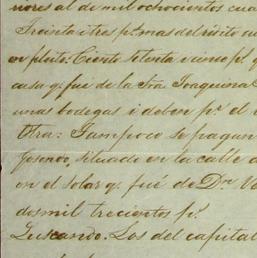 nores al de mil ochocientos cua
Treinta i tres ps. mas del rédito an
en pleito: Ciento setenta i cinco ps. q
casa q. fué de la Sra. Joaquina
unas bodegas i deben pr. el
Otra: Tampoco se pagan
Gosendo, situado en la calle d
en el solar q. fué de Dn. Va
dos mil trecientos ps.
Luscando. Los del capital